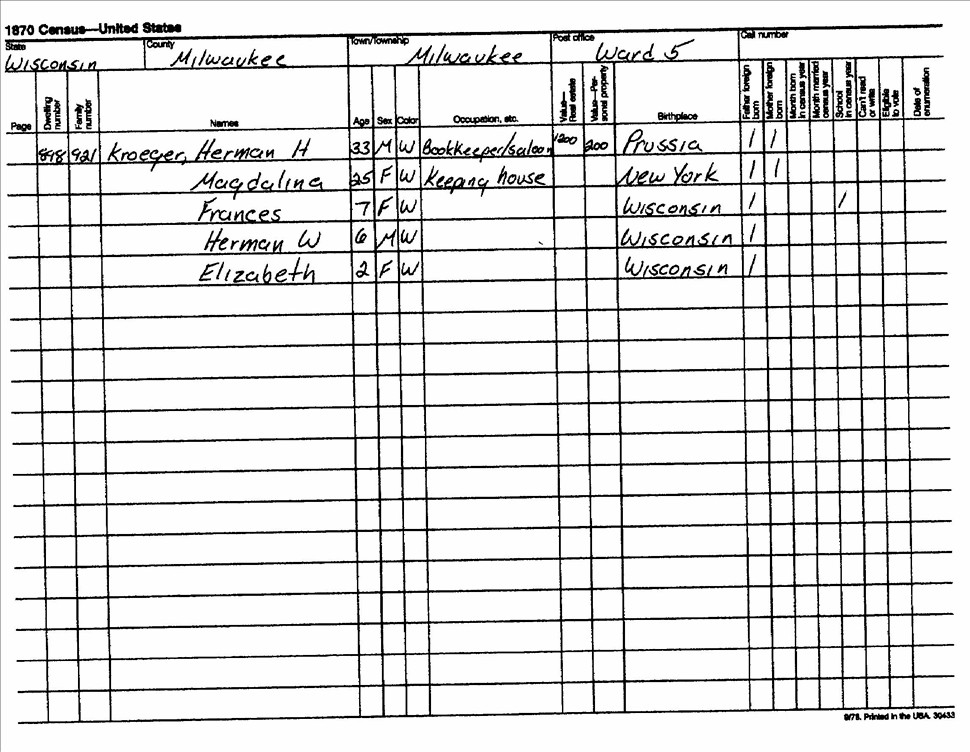 1870 Census—United States
State County Town/Township Post office Call number
Wisconsin Milwaukee Milwaukee Ward 5
Page Dwelling number Family number Names Age Sex Color Occupation, etc. Value—Real estate Value—Personal property Birthplace Father foreign born Mother foreign born Month born in census year Month married census year School in census year Can't read or write Eligible to vote Date of enumeration
898 921 Kroeger, Herman H 33 M W Bookkeeper/saloon 1200 200 Prussia / /
Magdalina 25 F W Keeping house New York / /
Frances 7 F W Wisconsin / /
Herman W 6 M W Wisconsin /
Elizabeth 2 F W Wisconsin /
9/78. Printed in the USA. 30433